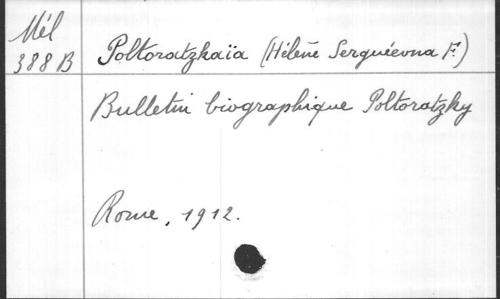 Mél
388 B
Poltoratzkaïa (Hélène Serguéevna F.)
Bulletin biographique Poltoratzky
Rome, 1912.